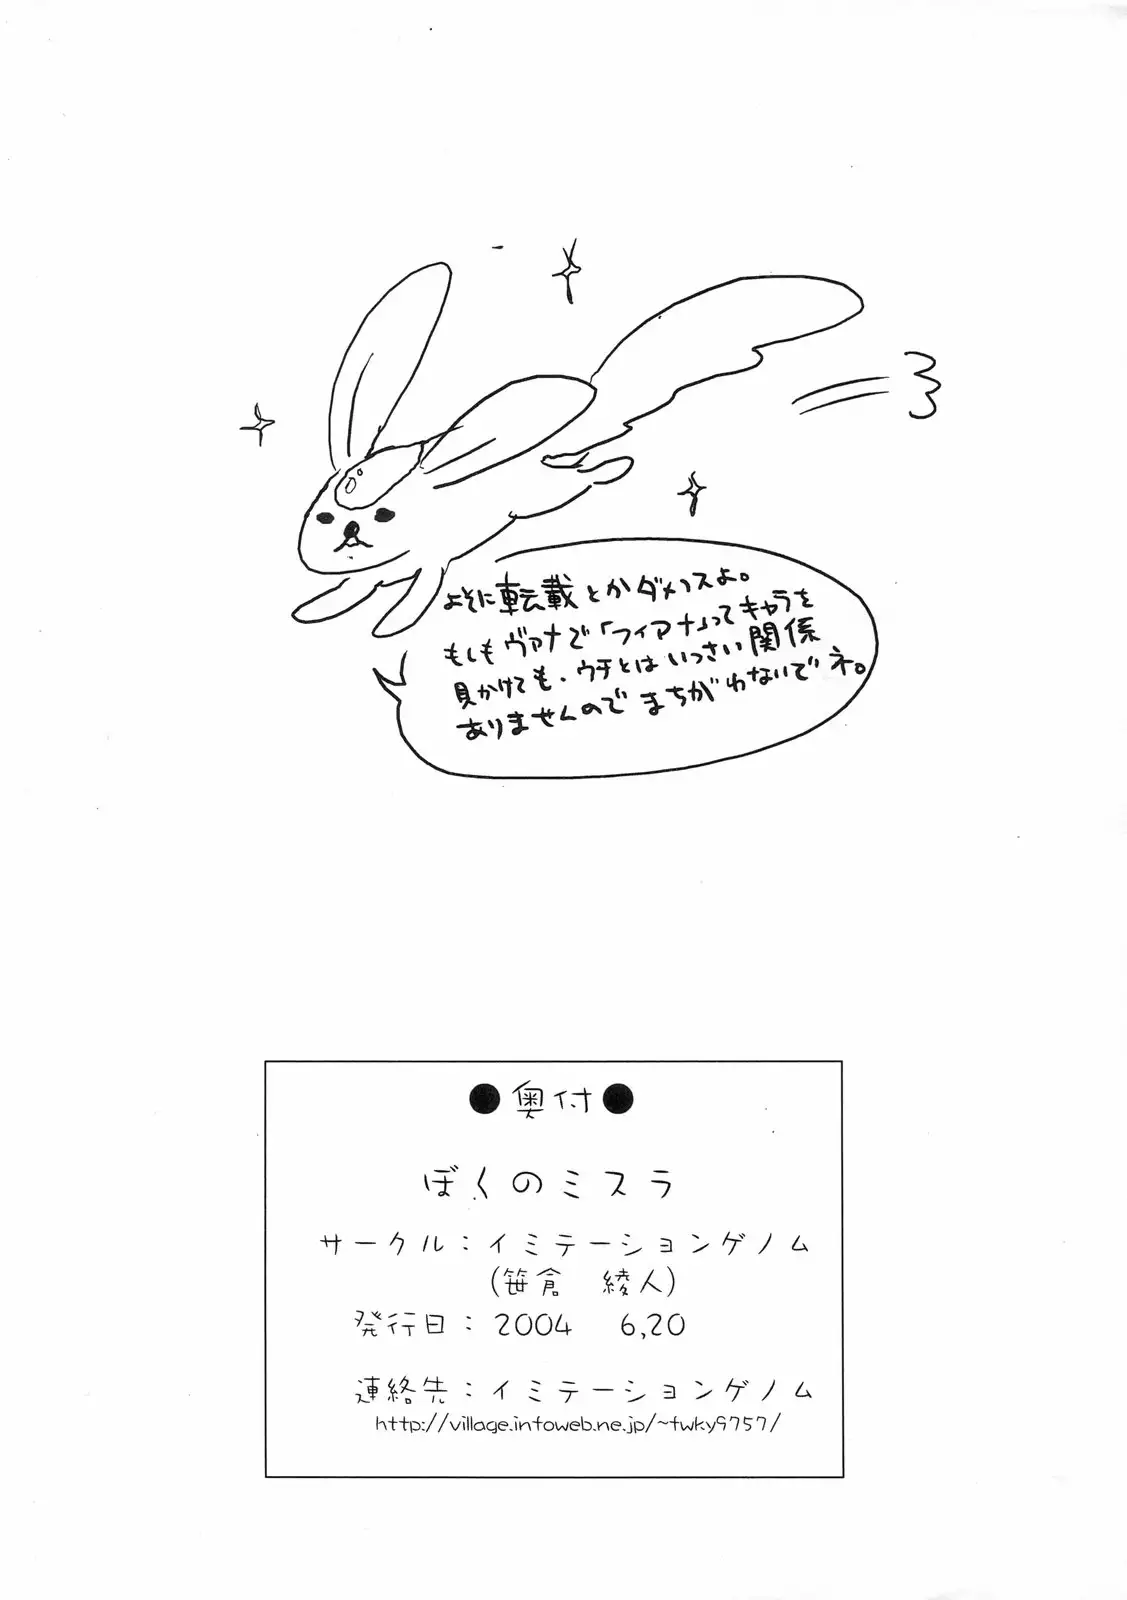 よそに転載とかダメッスよ。
もしもヴァナで「フィアナ」ってキャラを
見かけても、ウチとはいっさい関係
ありませんのでまちがわないでネ。
●奥付●
ぼくのミスラ
サークル：イミテーションゲノム
(笹倉 綾人)
発行日：2004 6,20
連絡先：イミテーションゲノム
http://village.infoweb.ne.jp/~fwky9757/